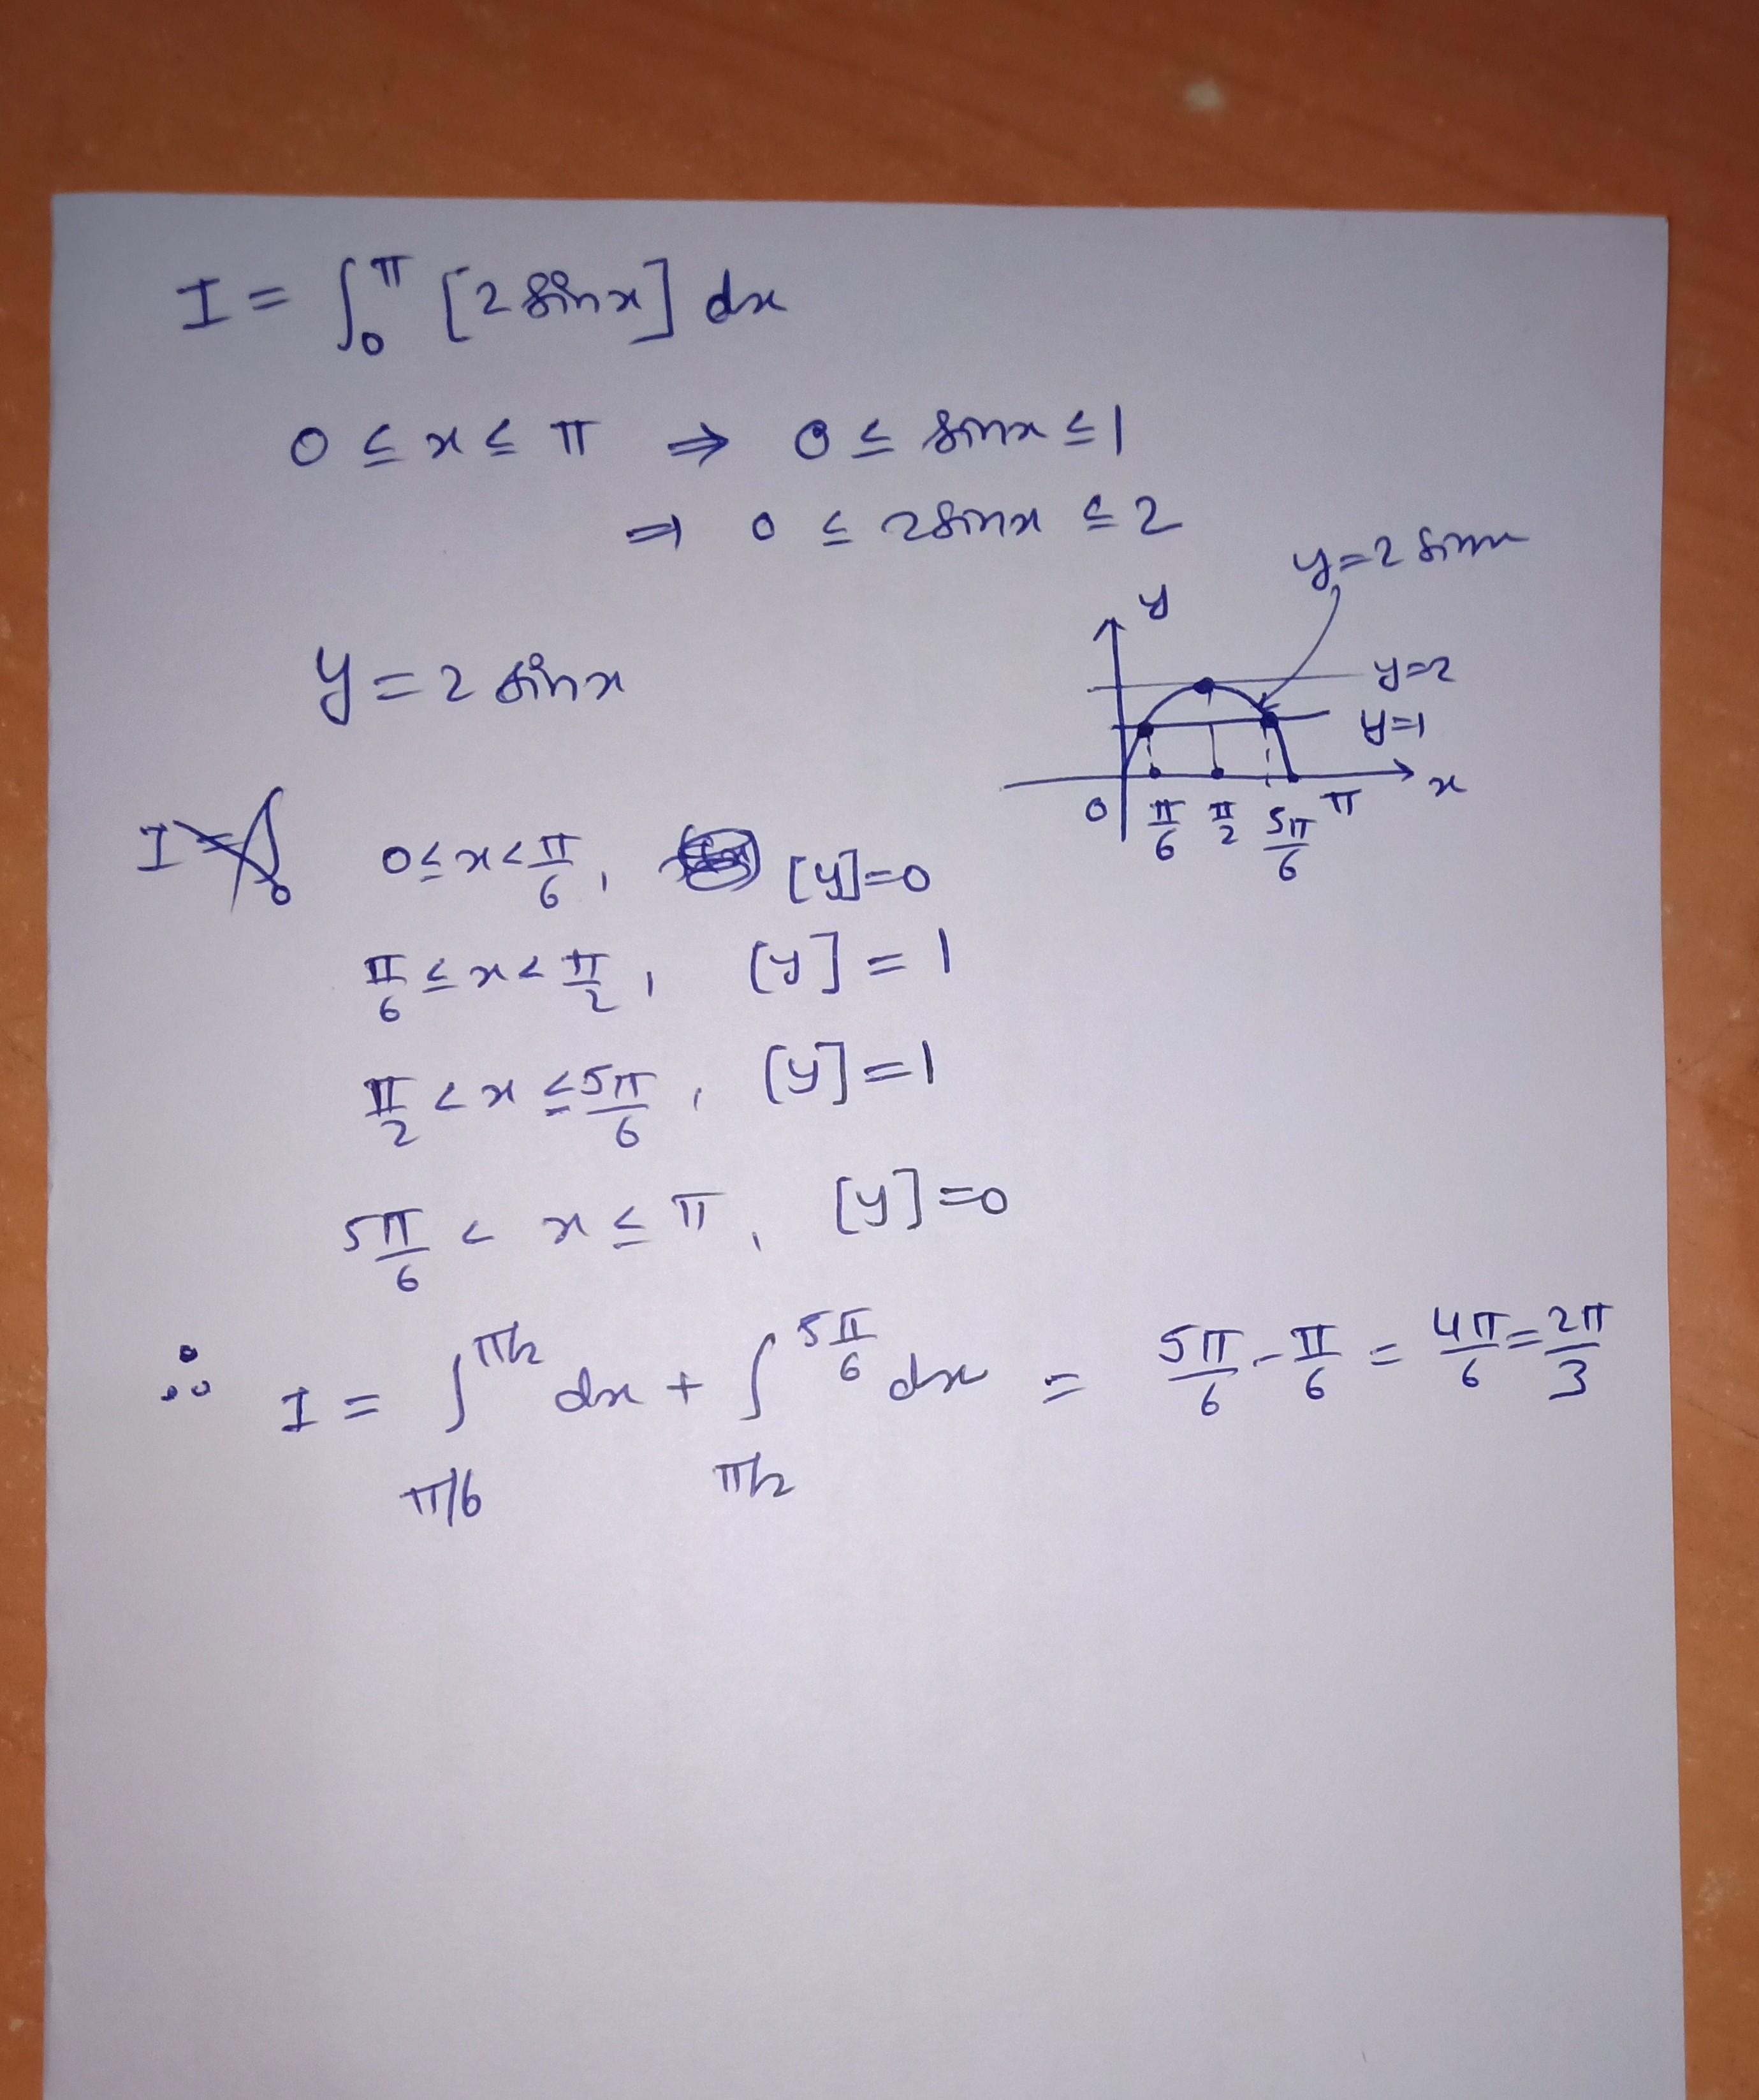 I = ∫₀^π [2 sin x] dx
0 ≤ x ≤ π ⇒ 0 ≤ sin x ≤ 1
⇒ 0 ≤ 2 sin x ≤ 2
y = 2 sin x
y
y = 2 sin x
y = 2
y = 1
x
0 π/6 π/2 5π/6 π
0 ≤ x < π/6, [y] = 0
π/6 ≤ x < π/2, [y] = 1
π/2 < x ≤ 5π/6, [y] = 1
5π/6 < x ≤ π, [y] = 0
∴ I = ∫_{π/6}^{π/2} dx + ∫_{π/2}^{5π/6} dx = 5π/6 - π/6 = 4π/6 = 2π/3